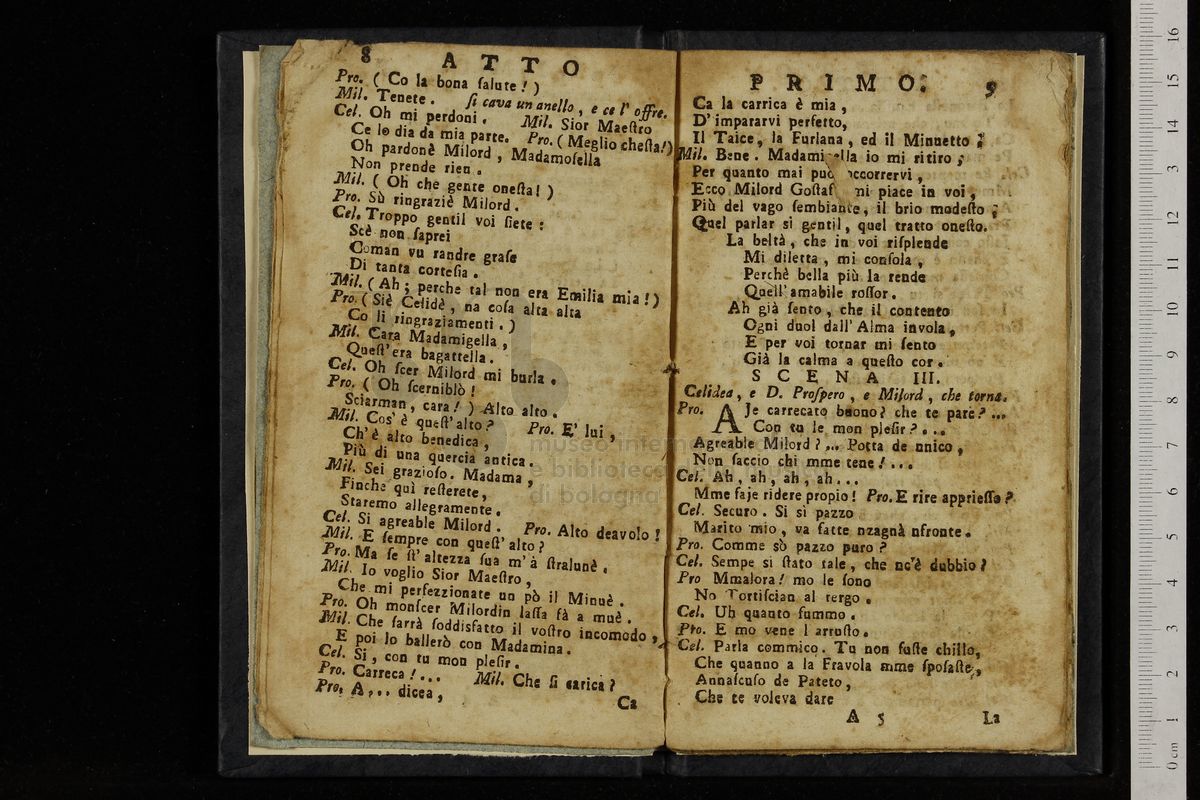 8 ATTO
Pro. ( Co la bona ſalute ! )
Mil. Tenete . ſi cava un anello , e ce l' offre.
Cel. Oh mi perdoni . Mil. Sior Maeſtro
Ce lo dia da mia parte. Pro. ( Meglio cheſta!)
Oh pardonè Milord , Madamoſella
Non prende rien .
Mil. ( Oh che gente oneſta! )
Pro. Sù ringraziè Milord .
Cel. Troppo gentil voi ſiete :
Scè non ſaprei
Coman vu randre graſe
Di tanta corteſia .
Mil. ( Ah ; perche tal non era Emilia mia ! )
Pro. ( Siè Celidè , na coſa alta alta
Co li ringraziamenti . )
Mil. Cara Madamigella ,
Queſt' era bagattella .
Cel. Oh ſcer Milord mi burla .
Pro. ( Oh ſcerniblò !
Sciarman , cara ! ) Alto alto .
Mil. Cos' è queſt' alto ? Pro. E' lui ,
Ch' è alto benedica ,
Più di una quercia antica .
Mil. Sei grazioſo . Madama ,
Finche quì reſterete ,
Staremo allegramente .
Cel. Si agreable Milord . Pro. Alto deavolo !
Mil. E ſempre con queſt' alto ?
Pro. Ma ſe ſt' altezza ſua m' à ſtralunè .
Mil. Io voglio Sior Maeſtro ,
Che mi perfezzionate un pò il Minuè .
Pro. Oh monſcer Milordin laſſa fà a muè .
Mil. Che farrà ſoddisfatto il voſtro incomodo ,
E poi lo ballerò con Madamina .
Cel. Si , con tu mon pleſir .
Pro. Carreca ! ... Mil. Che ſi carica ?
Pro. A ... dicea ,
Ca
PRIMO. 9
Ca la carrica è mia ,
D' impararvi perfetto,
Il Taice, la Furlana , ed il Minuetto ;
Mil. Bene . io mi ritiro ;
Per quanto mai può occorrervi ,
Ecco Milord mi piace in voi ,
Più del vago ſembiante, il brio modeſto ;
Quel parlar si gentil, quel tratto oneſto.
La beltà , che in voi riſplende
Mi diletta , mi conſola ,
Perchè bella più la rende
Quell' amabile roſſor .
Ah già ſento , che il contento
Ogni duol dall' Alma invola ,
E per voi tornar mi ſento
Già la calma a queſto cor .
SCENA III.
Celidea , e D. Proſpero , e Milord , che torna.
Pro. AJe carrecato buono? che te pare ? ...
Con tu le mon pleſir ? ...
Agreable Milord ? ... Potta de nnico ,
Non ſaccio chi mme tene ! ...
Cel. Ah , ah , ah , ah ...
Mme faje ridere propio ! Pro. E rire apprieſſo ?
Cel. Securo . Si si pazzo
Marito mio , va fatte nzagnà nfronte .
Pro. Comme sò pazzo puro ?
Cel. Sempe si ſtato tale , che nc'è dubbio ?
Pro Mmalora ! mo le ſono
No Tortiſcian al tergo .
Cel. Uh quanto fummo .
Pro. E mo vene l arruſto .
Cel. Parla commico . Tu non fuſte chillo,
Che quanno a la Fravola mme ſpoſaſte ,
Annaſcuſo de Pateto ,
Che te voleva dare
A 5 La